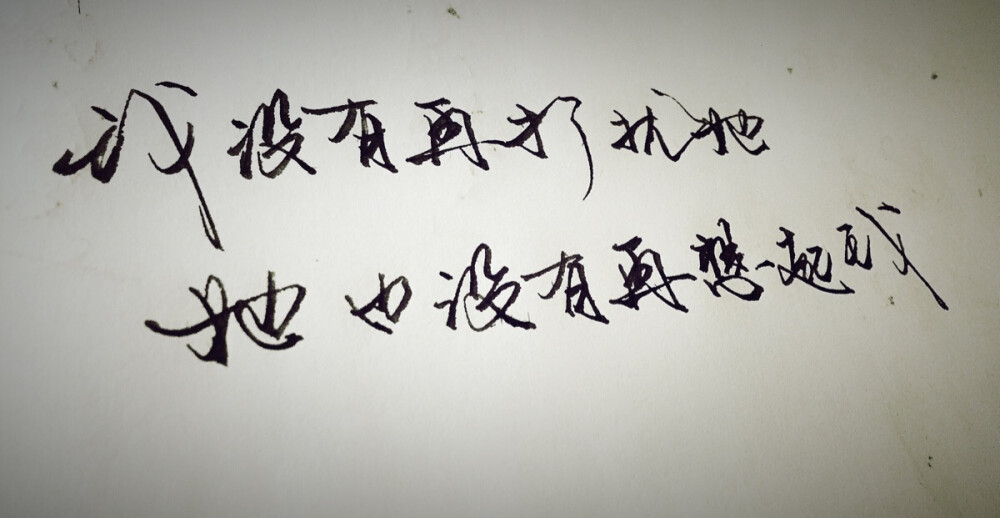 我没有再打扰她
她也没有再想起过我